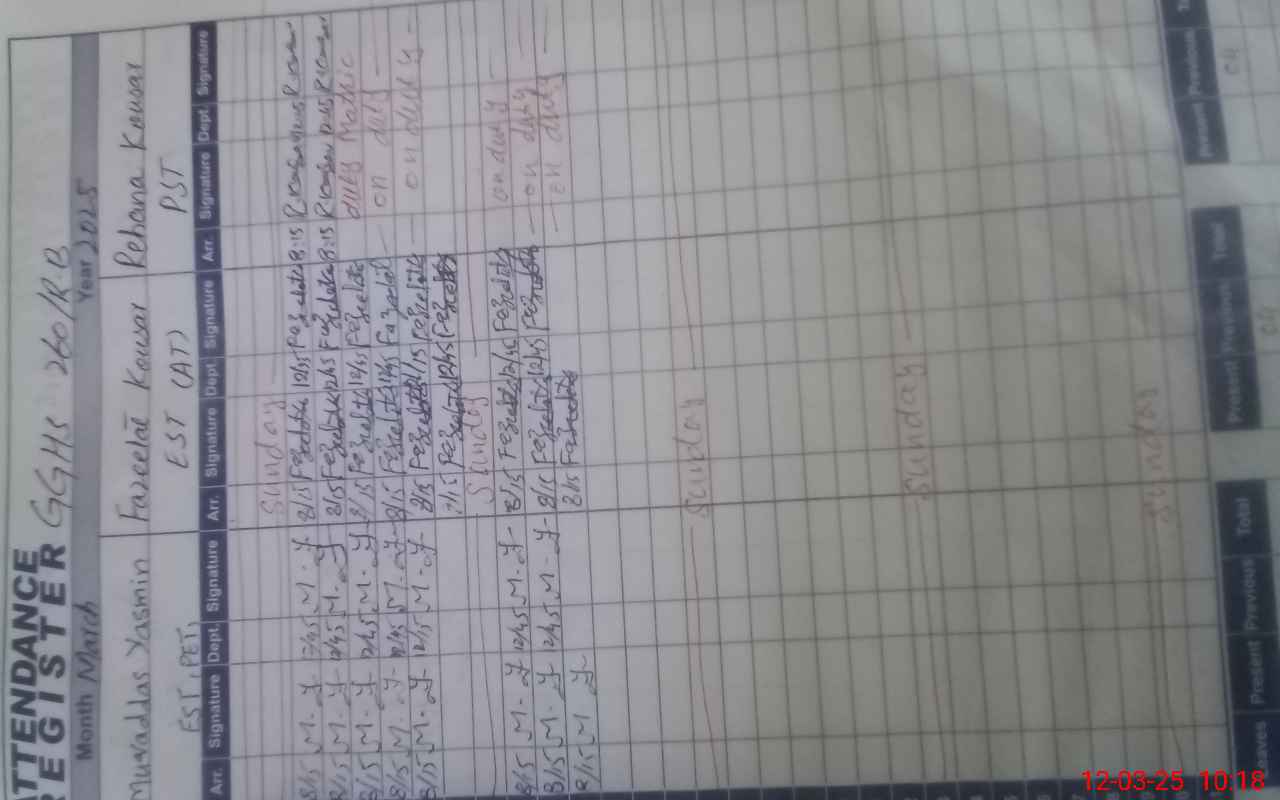 ATTENDANCE
REGISTER GGHS 260/R.B
Month March Year 2025
Muqaddas Yasmin Fazeelat Kousar Rehana Kousar
EST, PET, EST (AT) PST
Arr. Signature Dept. Signature Arr. Signature Dept. Signature Arr. Signature Dept. Signature
Sunday
8/15 M-Y 12/45 M-Y 8/15 Fazeelat 12/45 Fazeelat 8:15 R Kousar
8/15 M-Y 12/45 M-Y 8/15 Fazeelat 12/45 Fazeelat 8:15 R Kousar
8/15 M-Y 12/45 M-Y 8/15 Fazeelat 12/45 Fazeelat duty Matric
8/15 M-Y 12/45 M-Y 8/15 Fazeelat 12/45 Fazeelat - on duty -
8/15 M-Y 12/15 M-Y 8/15 Fazeelat 12/15 Fazeelat - on duty -
Fazeelat 12/45 Fazeelat
Sunday
8/15 M-Y 12/45 M-Y 8/15 Fazeelat 12/45 Fazeelat on duty -
8/15 M-Y 12/45 M-Y 8/15 Fazeelat 12/45 Fazeelat - on duty -
8/15 M Y 8/15 Fazeelat - on duty -
- Sunday -
- Sunday -
Sunday
Leaves Present Previous Total Present Previous Total Present Previous
04 04
12-03-25 10:18